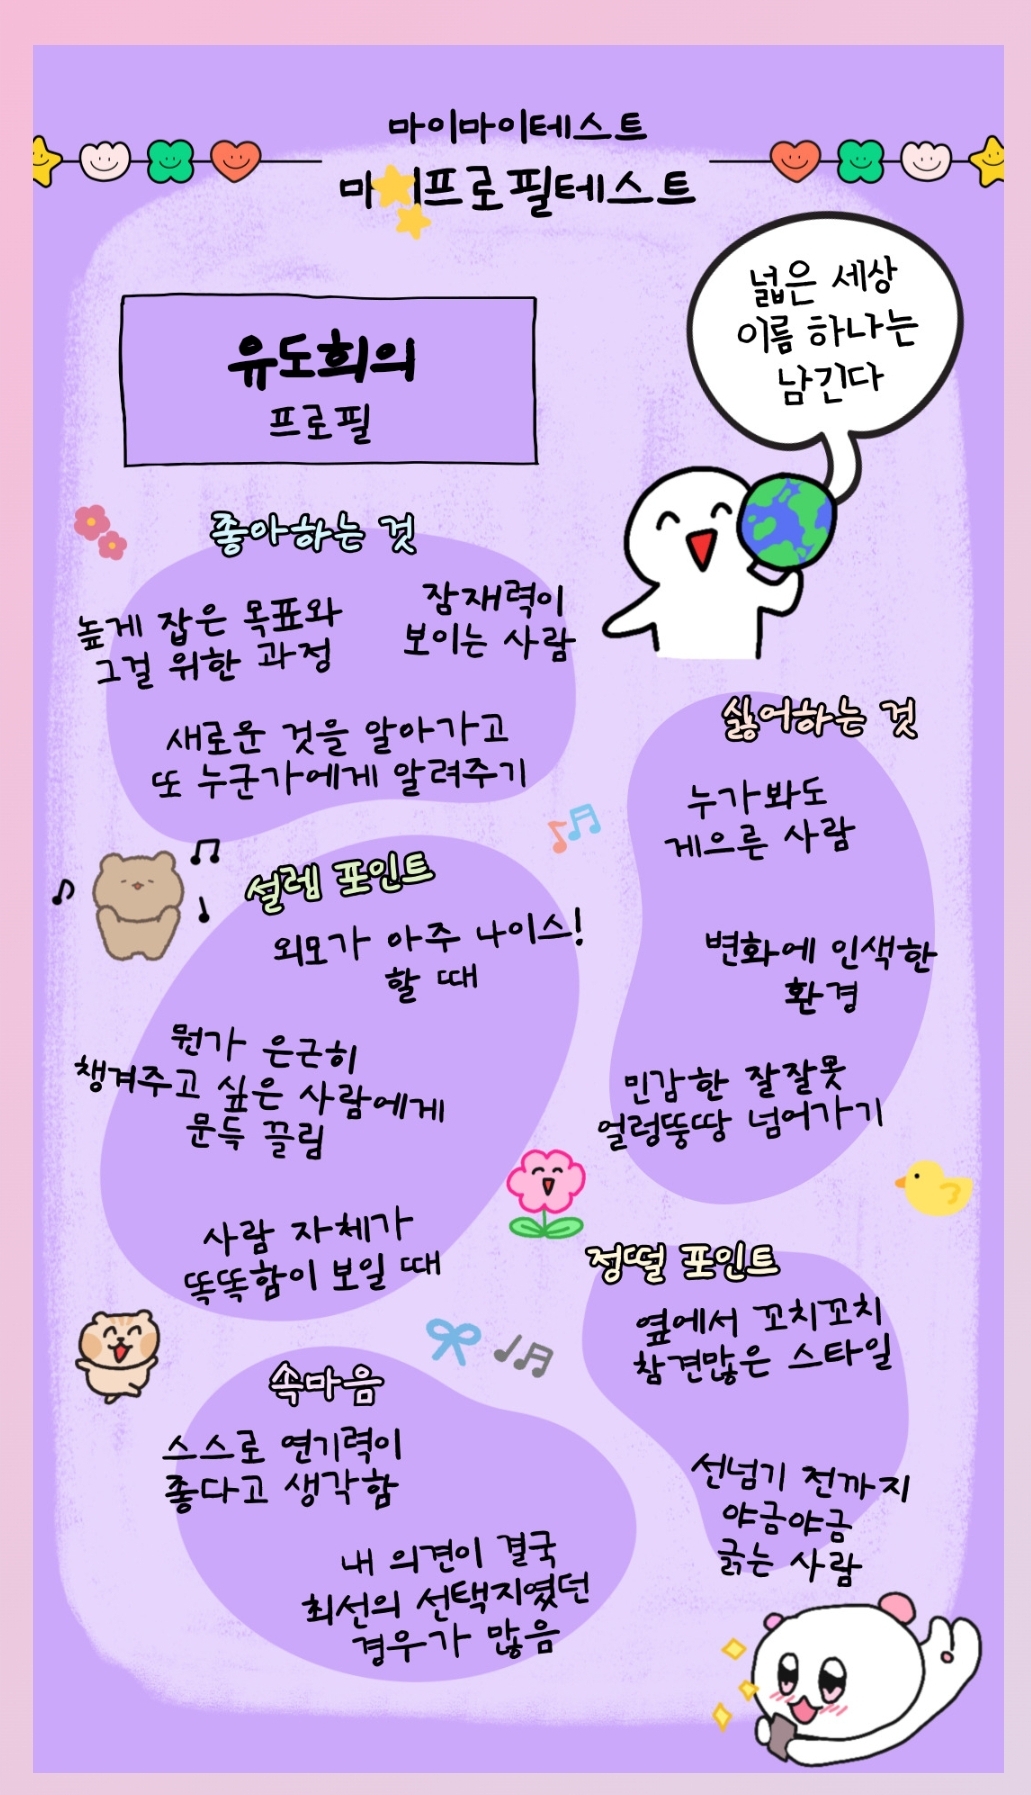 마이마이테스트
프로필테스트
넓은 세상
이름 하나는
남긴다
유도희의
프로필
좋아하는 것
높게 잡은 목표와
그걸 위한 과정
잠재력이
보이는 사람
새로운 것을 알아가고
또 누군가에게 알려주기
싫어하는 것
누가봐도
게으른 사람
변화에 인색한
환경
민감한 잘잘못
얼렁뚱땅 넘어가기
설렘 포인트
외모가 아주 나이스!
할 때
뭔가 은근히
챙겨주고 싶은 사람에게
문득 끌림
사람 자체가
똑똑함이 보일 때
정떨 포인트
옆에서 꼬치꼬치
참견많은 스타일
선넘기 전까지
야금야금
긁는 사람
속마음
스스로 연기력이
좋다고 생각함
내 의견이 결국
최선의 선택지였던
경우가 많음